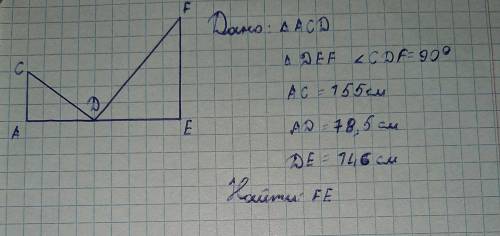 F
C
D
A
E
Дано: △ ACD
△ DEF ∠CDF=90°
AC = 155 см
AD = 78,5 см
DE = 146 см
Найти: FE